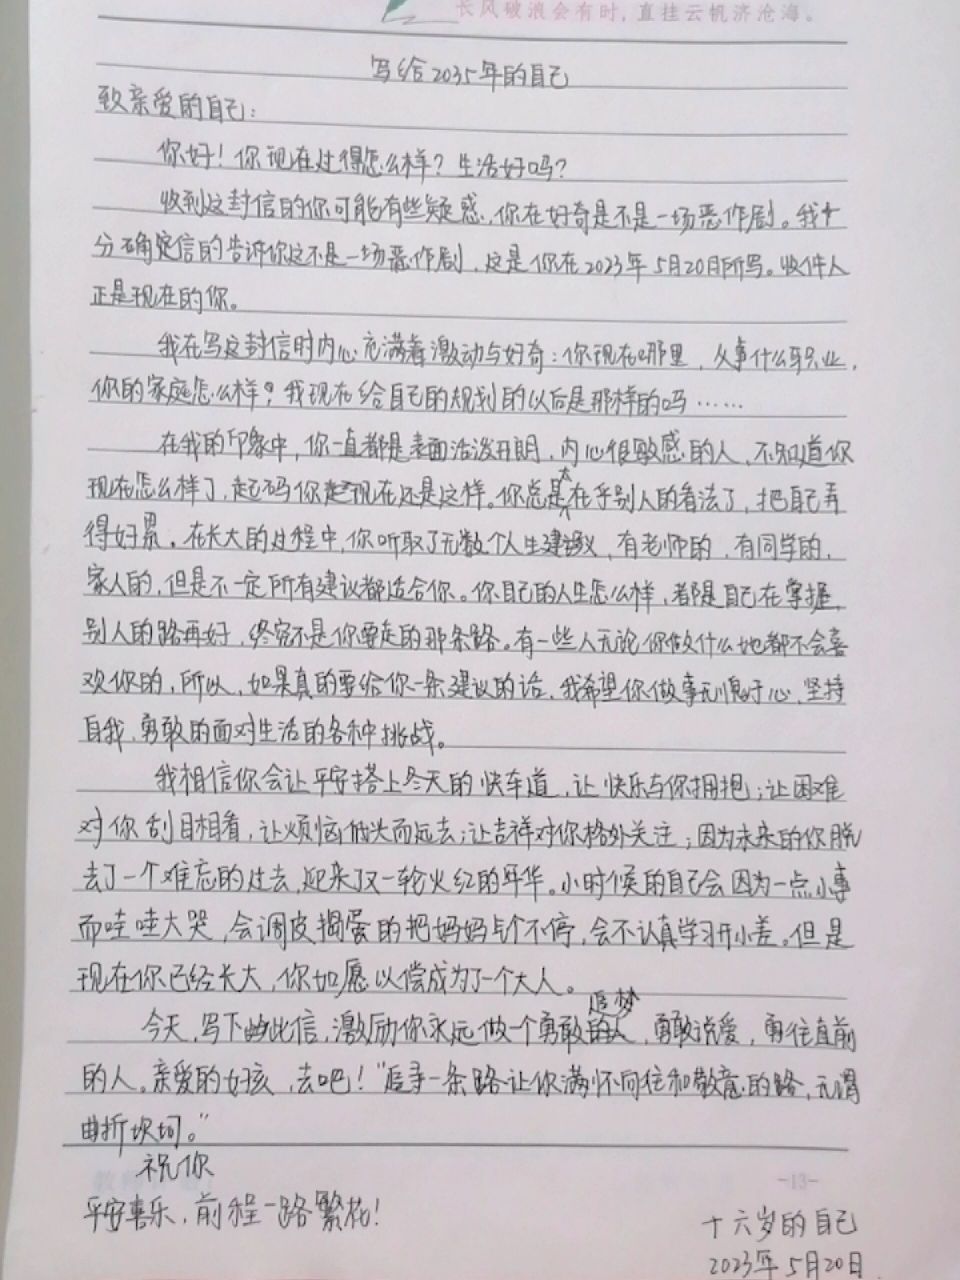 长风破浪会有时,直挂云帆济沧海。
写给2035年的自己
致亲爱的自己:
你好!你现在过得怎么样?生活好吗?
收到这封信的你可能有些疑惑,你在好奇是不是一场恶作剧。我十
分确定信的告诉你这不是一场恶作剧,这是你在2023年5月20日所写。收件人
正是现在的你。
我在写这封信时内心充满着激动与好奇:你现在哪里,从事什么职业,
你的家庭怎么样?我现在给自己的规划的以后是那样的吗……
在我的印象中,你一直都是表面活泼开朗,内心很敏感的人,不知道你
现在怎么样了,起码你现在还是这样。你总是太在乎别人的看法了,把自己弄
得好累。在长大的过程中,你听取了无数个人生建议,有老师的,有同学的,
家人的,但是不一定所有建议都适合你。你自己的人生怎么样,都是自己在掌握,
别人的路再好,终究不是你要走的那条路。有一些人无论你做什么他都不会喜
欢你的,所以,如果真的要给你一条建议的话,我希望你做事无愧于心,坚持
自我,勇敢的面对生活的各种挑战。
我相信你会让平安搭上冬天的快车道,让快乐与你拥抱;让困难
对你刮目相看,让烦恼低头而远去;让吉祥对你格外关注;因为未来的你脱
去了一个难忘的过去,迎来了又一轮火红的年华。小时候的自己会因为一点小事
而哇哇大哭,会调皮捣蛋的把妈妈与个不停,会不认真学习开小差。但是
现在你已经长大,你如愿以偿成为了一个大人。
今天,写下此信,激励你永远做一个勇敢追梦,勇敢说爱,勇往直前
的人。亲爱的女孩,去吧!“追寻一条路让你满怀向往和敬意的路,无谓
曲折坎坷。”
祝你
平安喜乐,前程一路繁花!
十六岁的自己
2023年5月20日
-13-